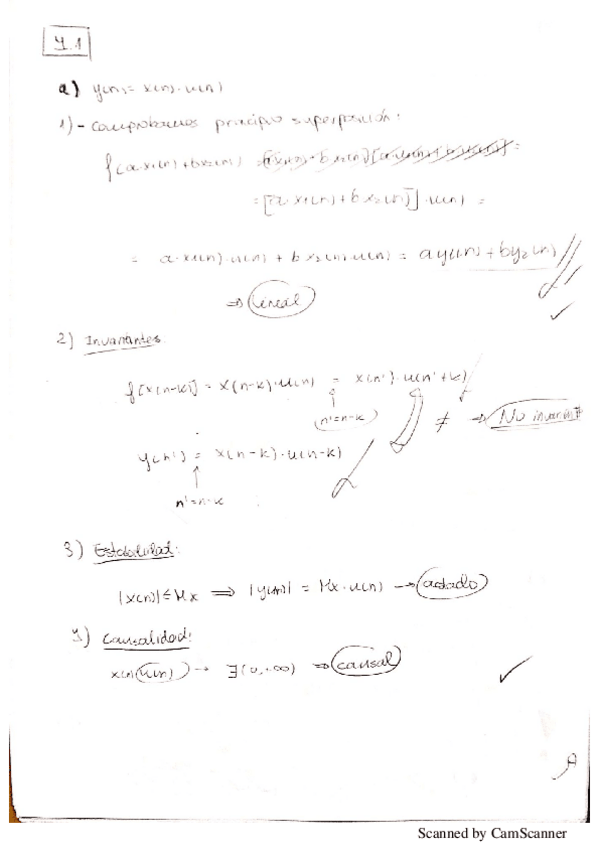 4.1
a) y(n) = x(n)·u(n)
1) - Comprobamos principio superposición:
f(a·x1(n) + bx2(n)) = =
= [a·x1(n) + b x2(n)]·u(n) =
= a·x1(n)·u(n) + b x2(n)·u(n) = a y1(n) + b y2(n) //
⇒ Lineal
2) Invariantes
f[x(n-k)] = x(n-k)·u(n) = x(n')·u(n'+k)
(n'=n-k)
≠ ⇒ No invariante
y(n') = x(n-k)·u(n-k)
n'=n-k
3) Estabilidad:
|x(n)| ≤ Mx ⇒ |y(n)| = Mx·u(n) → acotado
4) Causalidad:
x(n) u(n) → ∃(0, ∞) ⇒ causal
Scanned by CamScanner